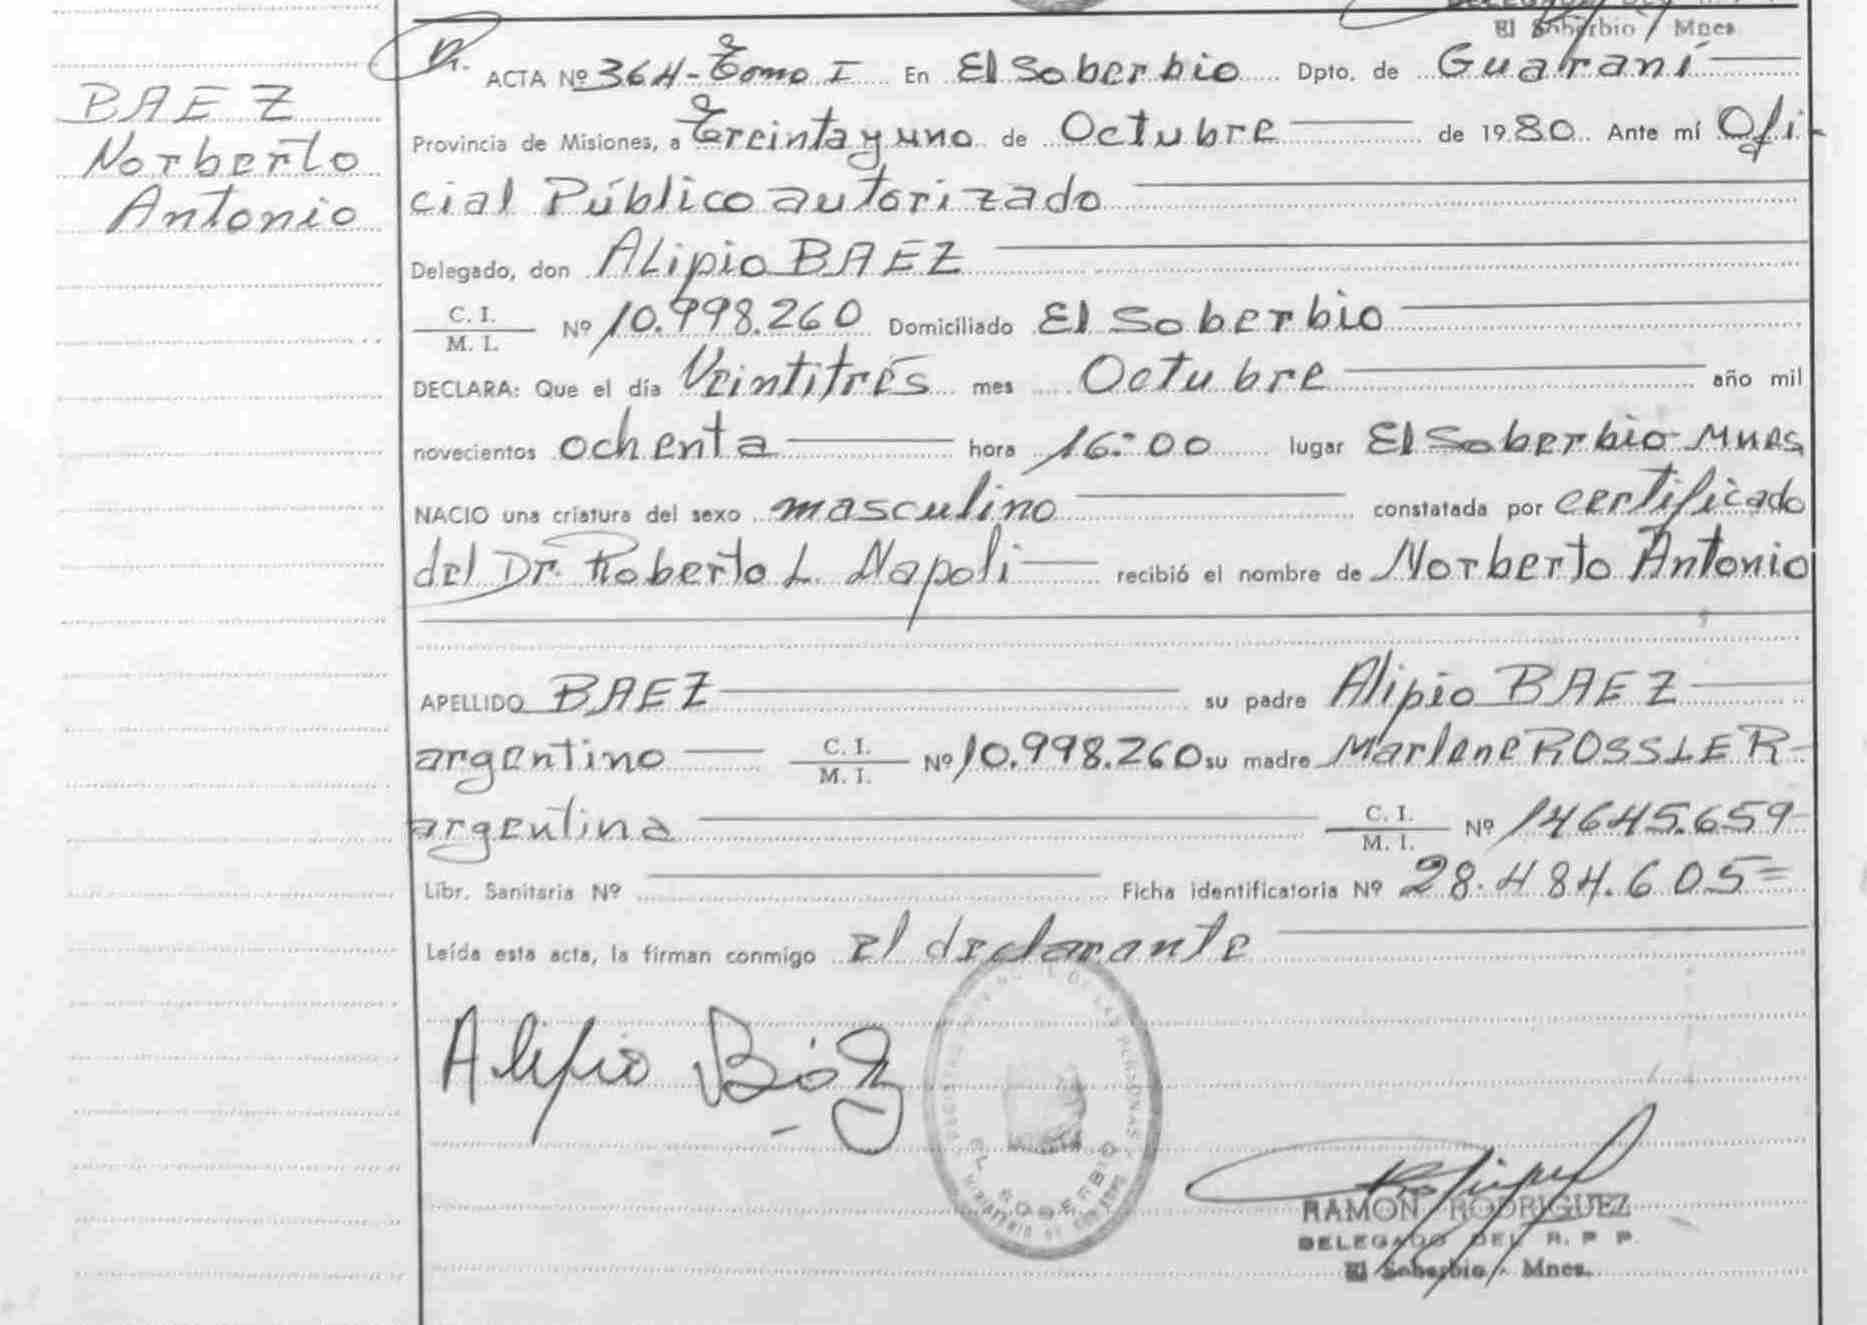 El Soberbio Mnes
BAEZ
Norberto
Antonio
ACTA Nº 364-Tomo I En El Soberbio Dpto. de Guaraní
Provincia de Misiones, a Treinta y uno de Octubre de 1980 Ante mí Ofi-
cial Público autorizado
Delegado, don Alipio BAEZ
C. I. / M. I. Nº 10.998.260 Domiciliado El Soberbio
DECLARA: Que el día Veintitrés mes Octubre año mil
novecientos ochenta hora 16:00 lugar El Soberbio-Mnes
NACIO una criatura del sexo masculino constatada por certificado
del Dr. Roberto L. Napoli recibió el nombre de Norberto Antonio
APELLIDO BAEZ su padre Alipio BAEZ
argentino C. I. / M. I. Nº 10.998.260 su madre Marlene ROSSLER
argentina C. I. / M. I. Nº 14645.659
Libr. Sanitaria Nº Ficha identificatoria Nº 28.484.605=
Leída esta acta, la firman conmigo el declarante
Alipio Báez
EL SOBERBIO
RAMON RODRIGUEZ
DELEGADO DEL R. P P.
El Soberbio - Mnes.